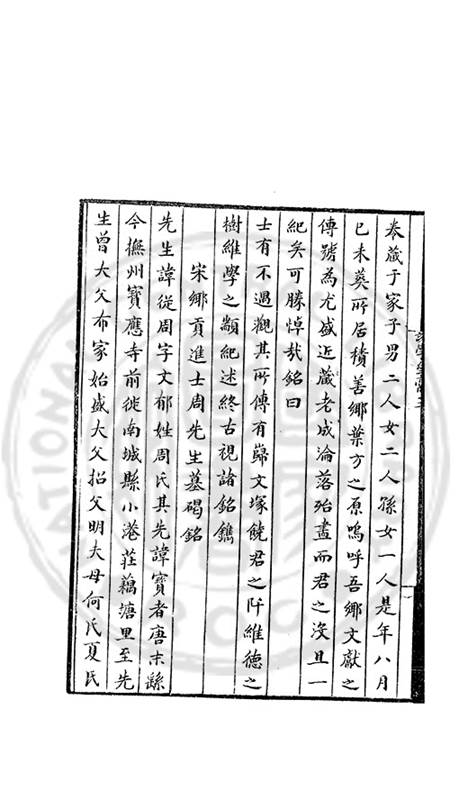 奉藏于家子男二人女二人孫女一人是年八月
己未葬所居積善鄉葉方之原嗚呼吾鄉文獻之
傳號為尤盛近歲老成淪落殆盡而君之沒且一
紀矣可勝悼哉銘曰
士有不遇觀其所傳有巋文塚饒君之阡維德之
樹維學之顓紀述終古視諸銘鐫
宋鄉貢進士周先生墓碣銘
先生諱從周字文郁姓周氏其先諱寶者唐末繇
今撫州寶應寺前徙南城縣小港莊藕塘里至先
生曾大父布家始盛大父招父明夫母何氏夏氏